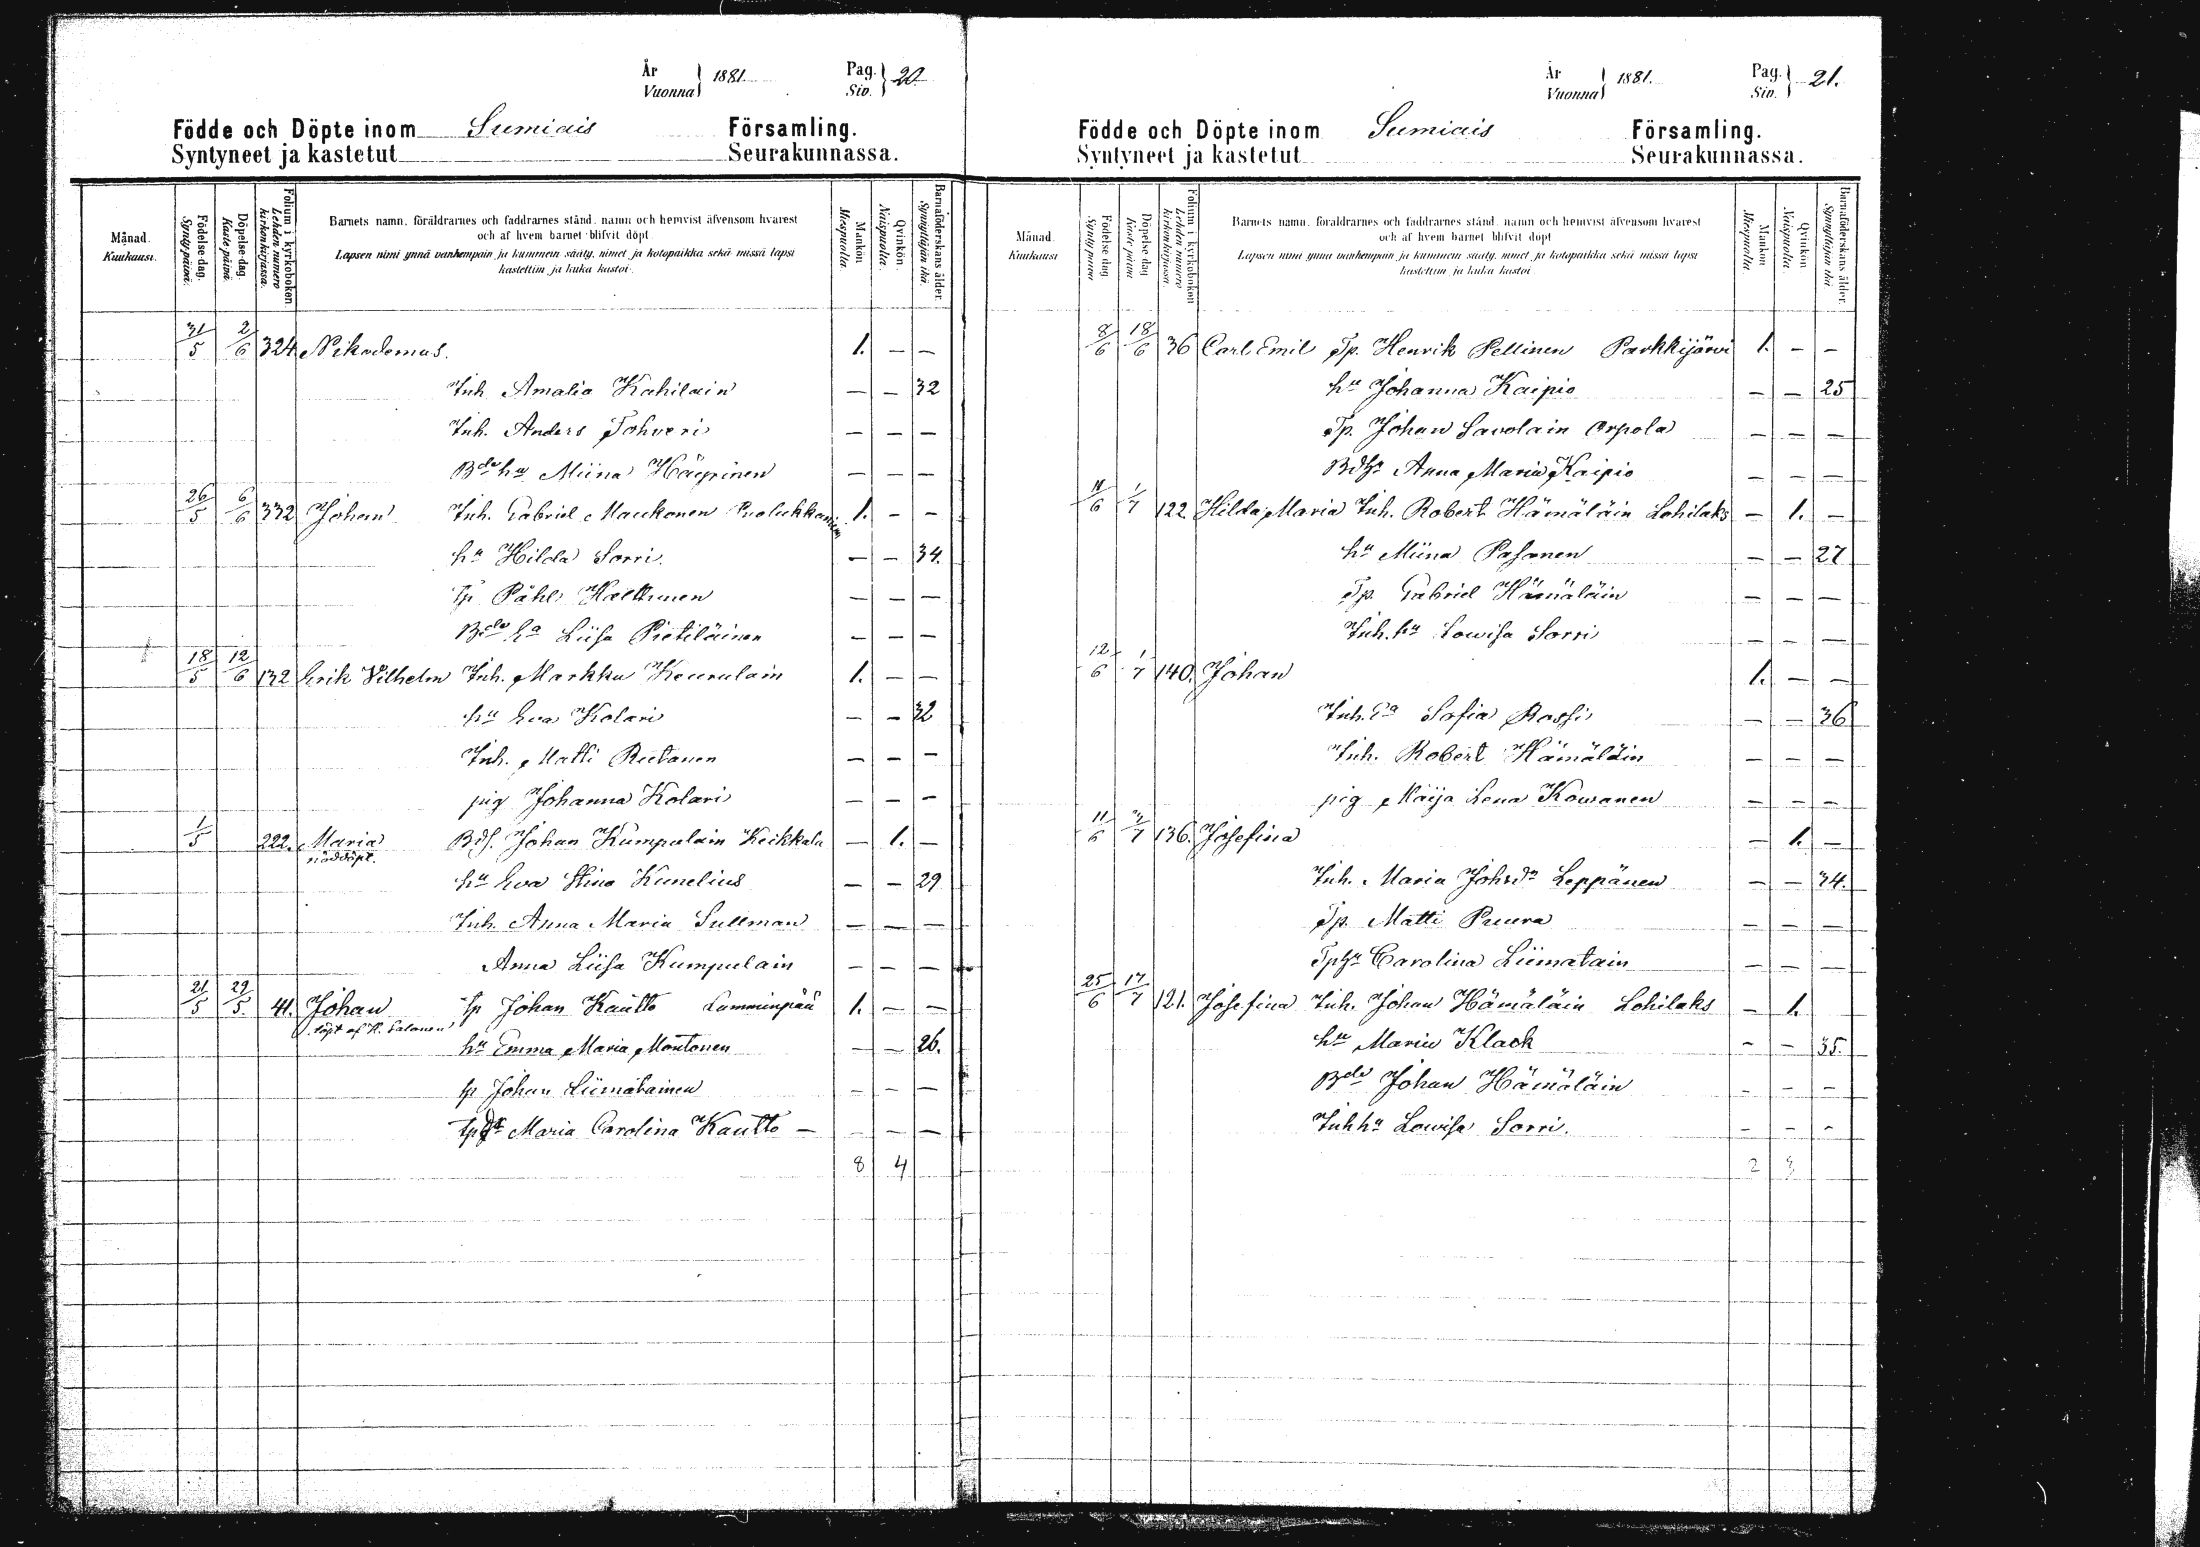 År
Vuonna 1881.
Pag.
Siv. 20
Födde och Döpte inom Sumiais Församling.
Syntyneet ja kastetut Seurakunnassa.
Månad.
Kuukausi.
Födelse dag.
Synty päivä.
Döpelse dag.
Kaste päivä.
Folium i kyrkoboken
Lehden numero kirkonkirjassa.
Barnets namn, föräldrarnes och faddrarnes stånd, namn och hemvist äfvensom hvarest
och af hvem barnet blifvit döpt.
Lapsen nimi ynnä vanhempain ja kummein sääty, nimet ja kotopaikka sekä missä lapsi
kastettiin ja kuka kastoi.
Mankön.
Miespuolia.
Qvinkön.
Naispuolia.
Barnaföderskans ålder.
Synnyttäjän ikä.
31/5 2/6 324 Nikodemus. 1. — —
Inh Amalia Kahilain — — 32
Inh. Anders Tohveri — — —
Bde hu Miina Häyrinen — — —
26/5 6/6 332 Johan Inh. Gabriel Maukonen Puolukkaniem 1. — —
hu Hilda Sorri. — — 34.
Tp Påhl — — —
Bde ha Liisa Pietiläinen — — —
18/5 12/6 132 Erik Vilhelm Inh. Markku Keurulain 1. — —
hu Eva Kolari — — 32
Inh. Matti Riitanen — — —
pig Johanna Kolari — — —
1/5 222. Maria Bdf. Johan Kumpulain Keikkala — 1. —
nöddöpt.
hu Eva Stina Kunelius — — 29
Inh. Anna Maria Sullman — — —
Anna Liisa Kumpulain — — —
21/5 29/5. 41. Johan tp Johan Kautto Lamminpää 1. — —
döpt af K. Salonen
hu Emma Maria Montonen — — 26.
tp Johan Liimatainen — — —
Maria Carolina Kautto — — — —
8 4
År
Vuonna 1881.
Pag.
Siv. 21.
Födde och Döpte inom Sumiais Församling.
Syntyneet ja kastetut Seurakunnassa.
Månad.
Kuukausi
Födelse dag
Synty päivä
Döpelse dag
Kaste päivä
Folium i kyrkoboken
Lehden numero kirkonkirjassa.
Barnets namn, föräldrarnes och faddrarnes stånd, namn och hemvist äfvensom hvarest
och af hvem barnet blifvit döpt
Lapsen nimi ynnä vanhempain ja kummein sääty, nimet ja kotopaikka sekä missä lapsi
kastettiin ja kuka kastoi
Mankön
Miespuolia
Qvinkön
Naispuolia
Barnaföderskans ålder.
Synnyttäjän ikä
8/6 18/6 36 Carl Emil Tp. Henrik Pellinen Parkkijärvi 1. — —
hu Johanna Kaipio — — 25
Tp. Johan Savolain Orpola — — —
Bdhu Anna Maria Kaipio — — —
11/6 1/7 122 Hilda Maria Inh. Robert Hämäläin Lohilaks — 1. —
hu Miina Pasanen — — 27
Tp. Gabriel Hämäläin — — —
Inh. hu Lowisa Sorri — — —
12/6 1/7 140. Johan 1. — —
Inh. Ea Sofia Rossi — — 36
Inh. Robert Hämäläin — — —
pig Maija Lena Kowanen — — —
11/6 3/7 136. Josefina — 1. —
Inh. Maria Johsdr Leppänen — — 34.
Tp. Matti Puura — — —
Tphu Carolina Liimatain — — —
25/6 17/7 121. Josefina Inh. Johan Hämäläin Lohilaks — 1.
hu Maria Klack — — 35.
Bde Johan Hämäläin — — —
Inhhu Lowisa Sorri. — — —
2 3